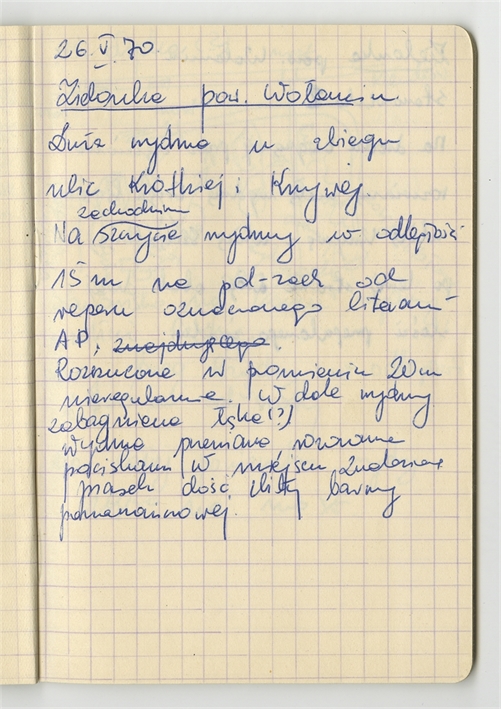 26.V.70.
Zielonka pow. Wołomin.
Duża wydma u zbiegu
ulic Krótkiej i Krzywej.
zachodnim
Na szczycie wydmy w odległości
15 m na pd-zach od
reperu oznaczonego literami
AP, znajdującego.
Rozrzucone w promieniu 20 m
nieregularnie. W dole wydmy
zabagniona łąka (?)
wydma przeważnie rozorana
pociskami w miejscu znalezisk
piasek dość żółty barwy
pomarańczowej.